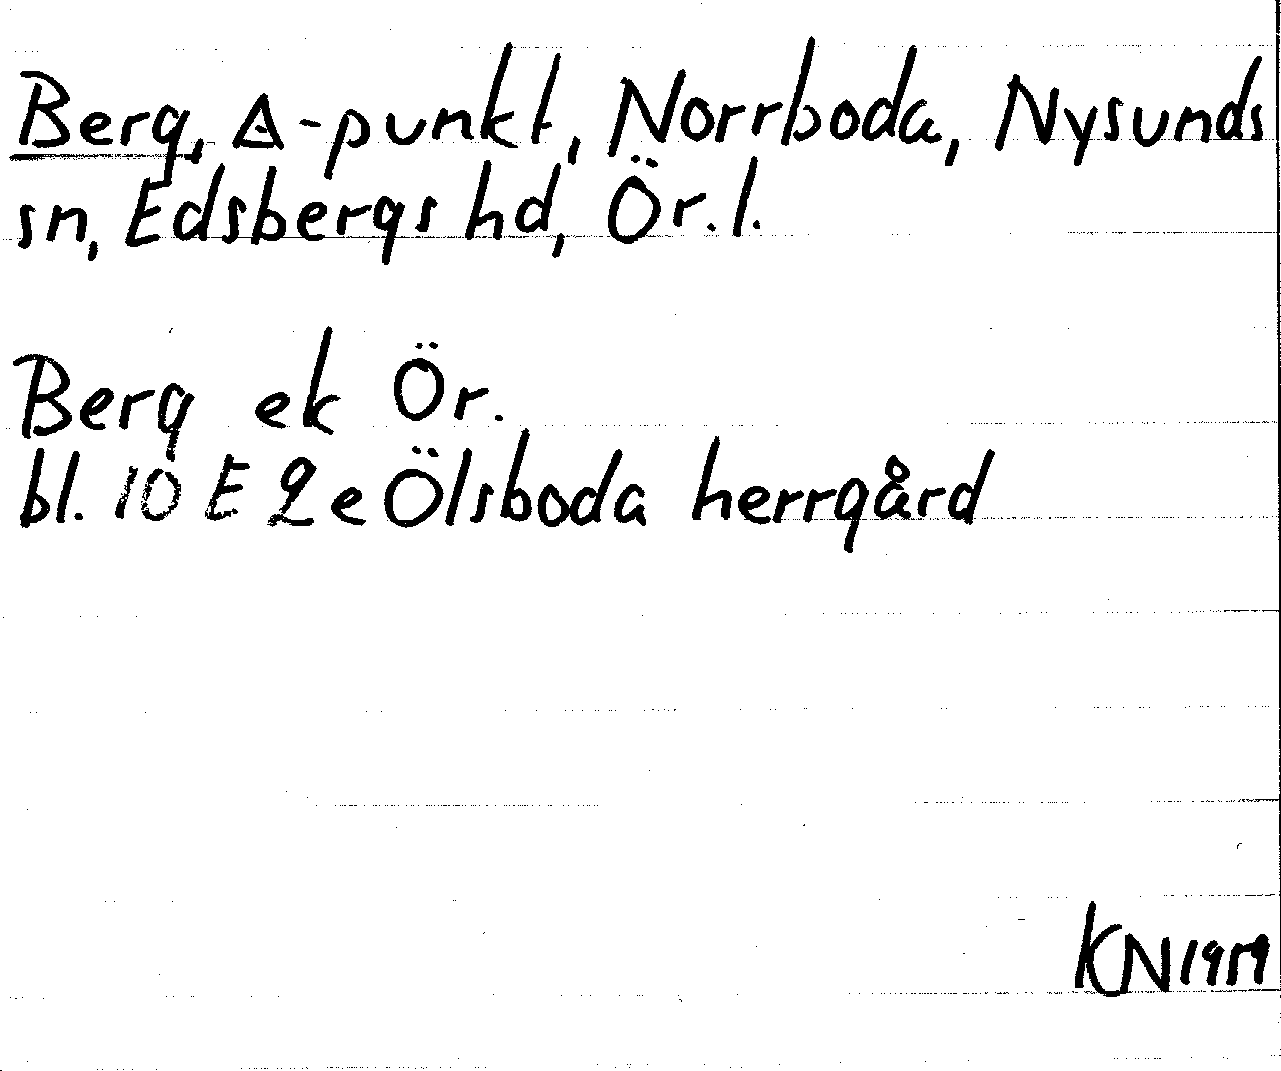 Berg, △-punkt, Norrboda, Nysunds
sn, Edsbergs hd, Ör. l.
Berg ek Ör.
bl. 10 E 2e Ölsboda herrgård
KN